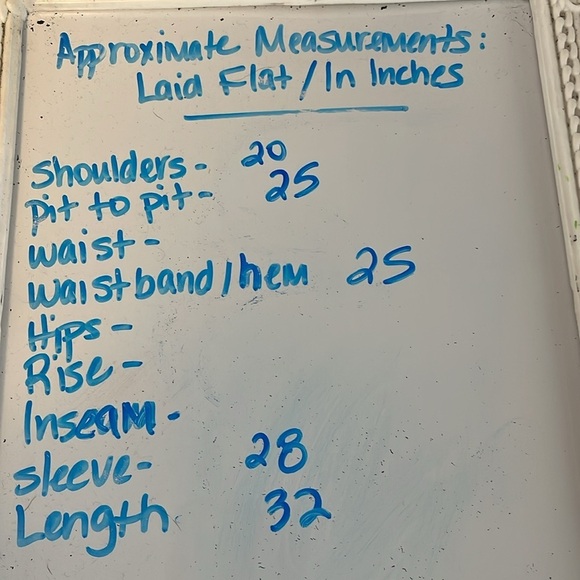 Approximate Measurements:
Laid Flat / In Inches
Shoulders- 20
pit to pit- 25
waist-
waistband/hem 25
Hips-
Rise-
Inseam-
sleeve- 28
Length 32